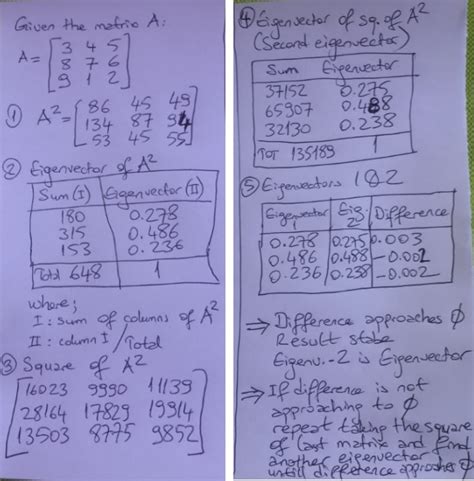 Given the matrix A:
A = [ 3 4 5
8 7 6
9 1 2 ]
① A² = [ 86 45 49
134 87 94
53 45 55 ]
② Eigenvector of A²
Sum (I) Eigenvector (II)
180 0.278
315 0.486
153 0.236
Tot 648 1
where;
I : sum of columns of A²
II : column I / Total
③ Square of A²
[ 16023 9990 11139
28164 17829 19914
13503 8775 9852 ]
④ Eigenvector of sq. of A²
(Second eigenvector)
Sum Eigenvector
37152 0.275
65907 0.488
32130 0.238
TOT 135189 1
⑤ Eigenvectors 1 & 2
Eigenvector 1 Eig. 2 Difference
0.278 0.275 0.003
0.486 0.488 -0.002
0.236 0.238 -0.002
⇒ Difference approaches 0
Result stabe
Eigenv.-2 is Eigenvector
⇒ If difference is not
approaching to 0
repeat taking the square
of last matrix and find
another eigenvector
untill difference approaches 0